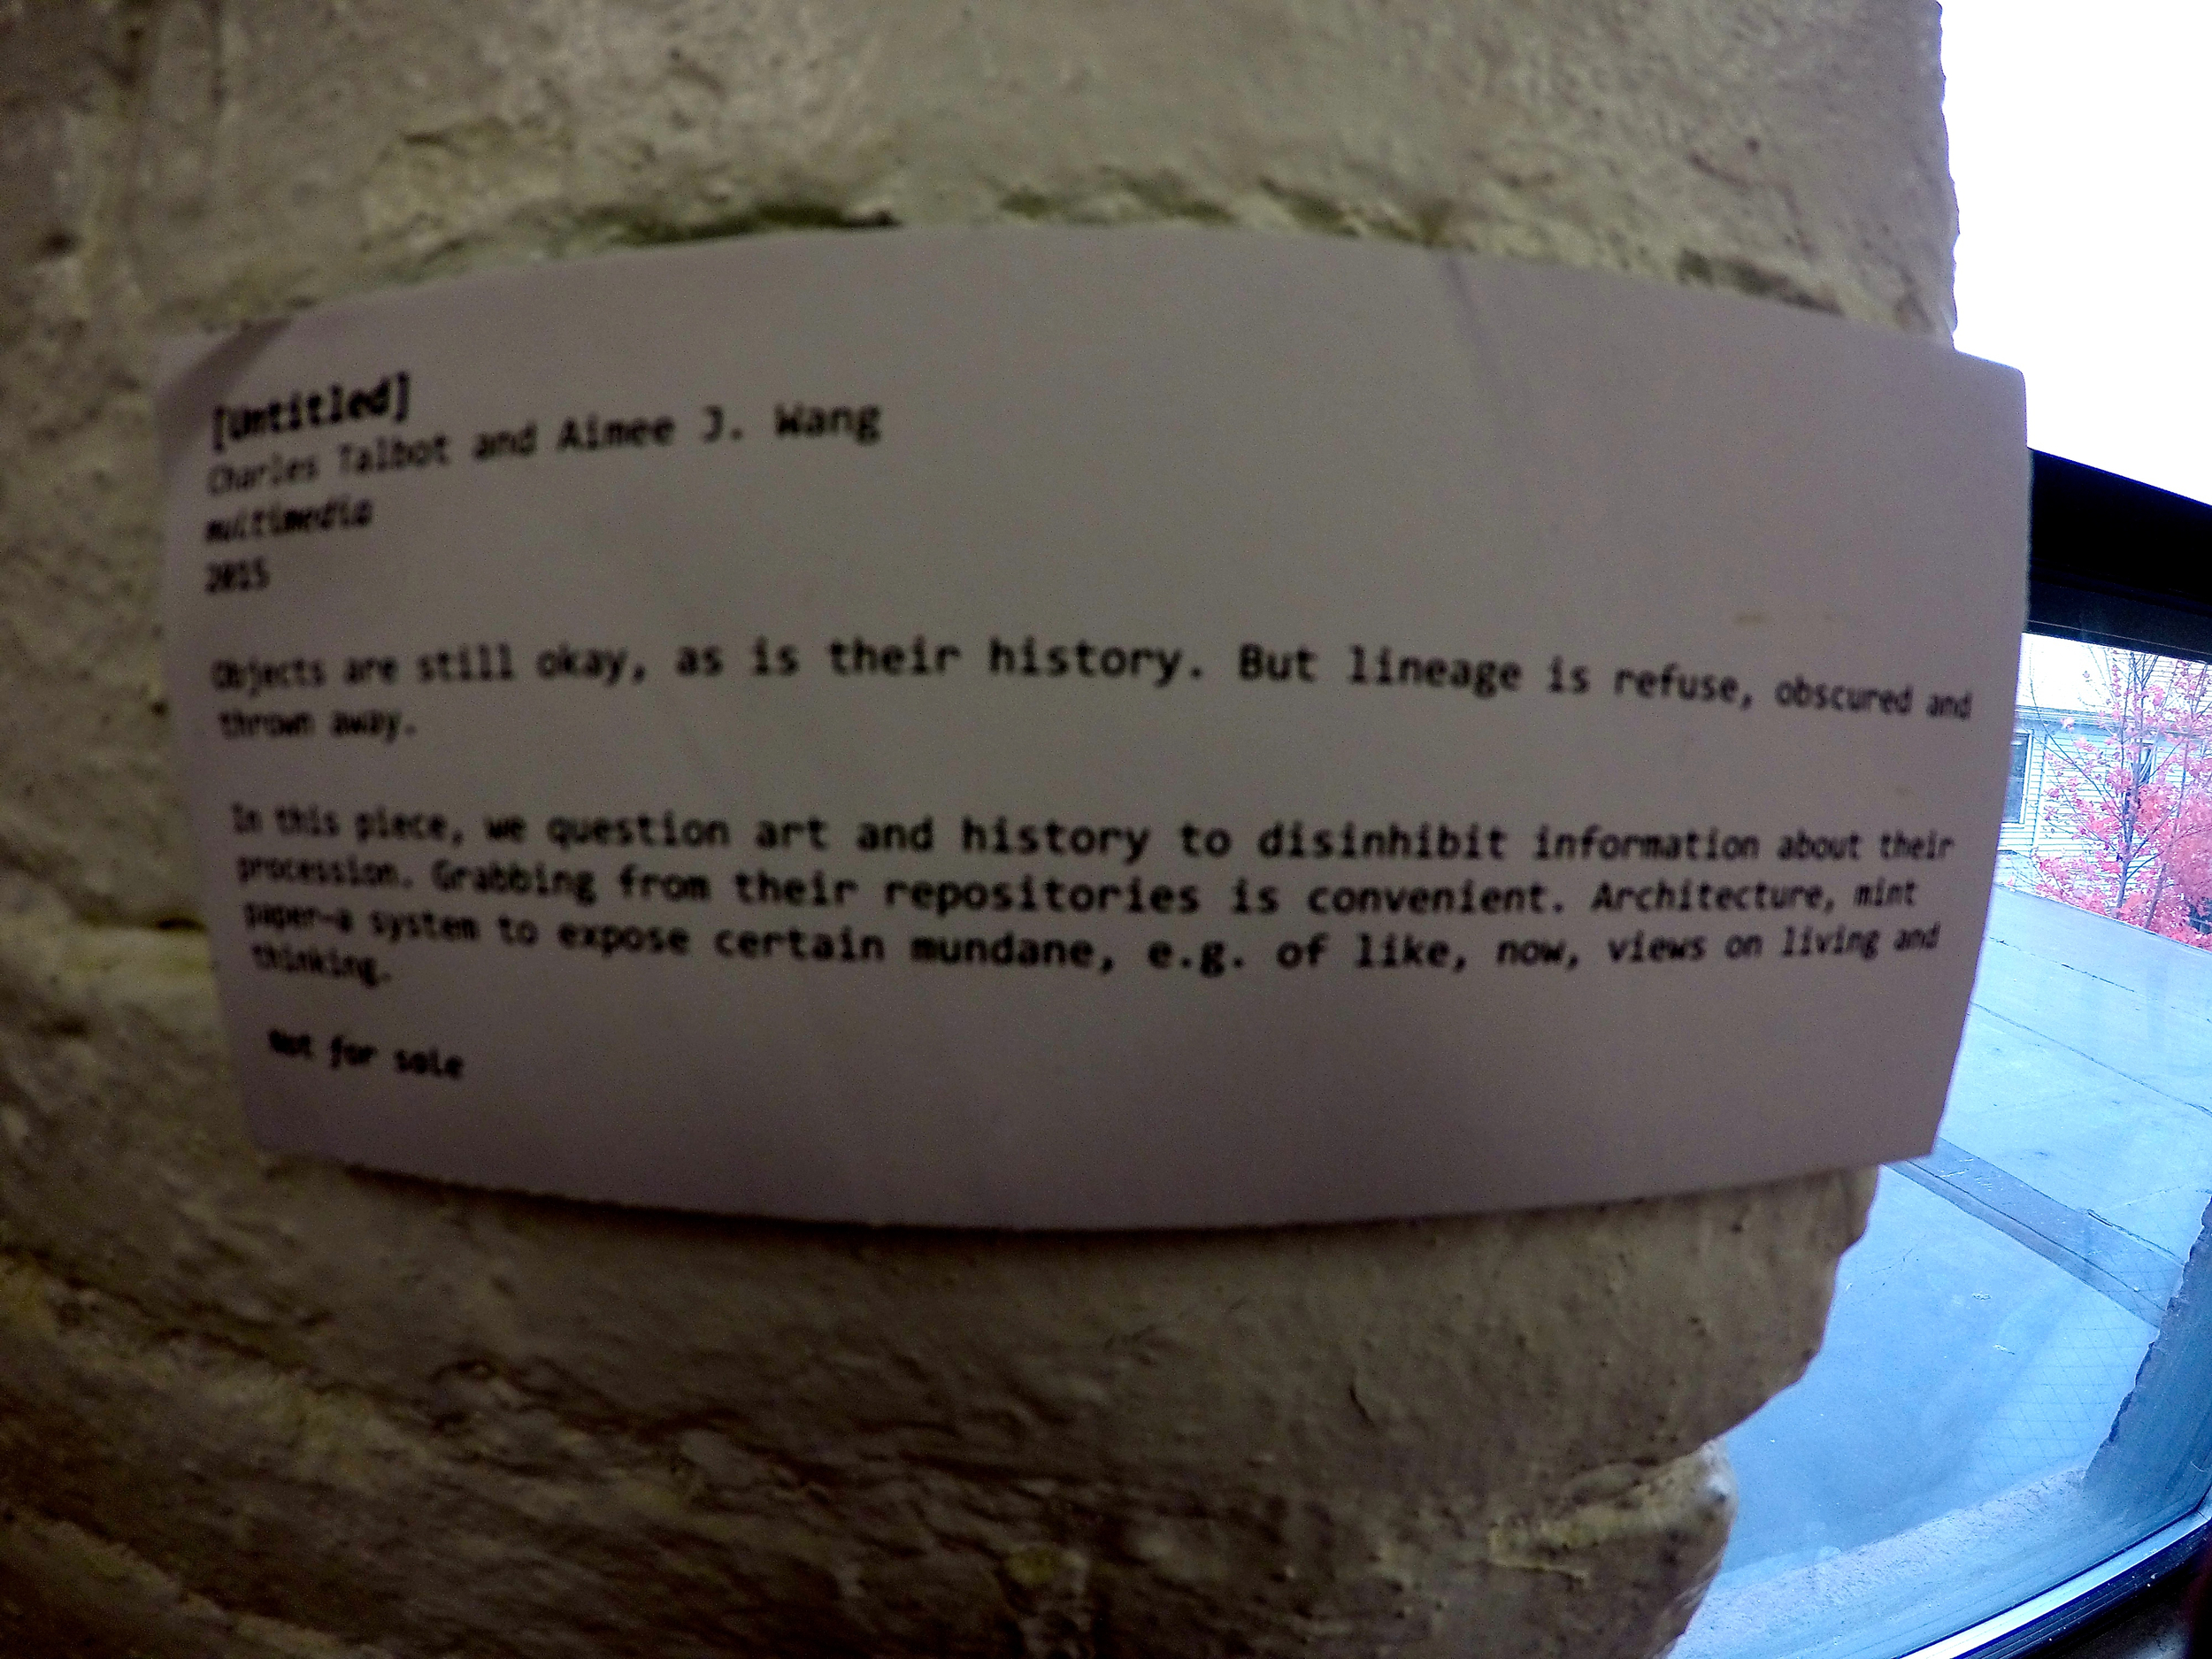 [Untitled]
Charles Talbot and Aimee J. Wang
multimedia
2015
Objects are still okay, as is their history. But lineage is refuse, obscured and
thrown away.
In this piece, we question art and history to disinhibit information about their
procession. Grabbing from their repositories is convenient. Architecture, mint
paper—a system to expose certain mundane, e.g. of like, now, views on living and
thinking.
Not for sale